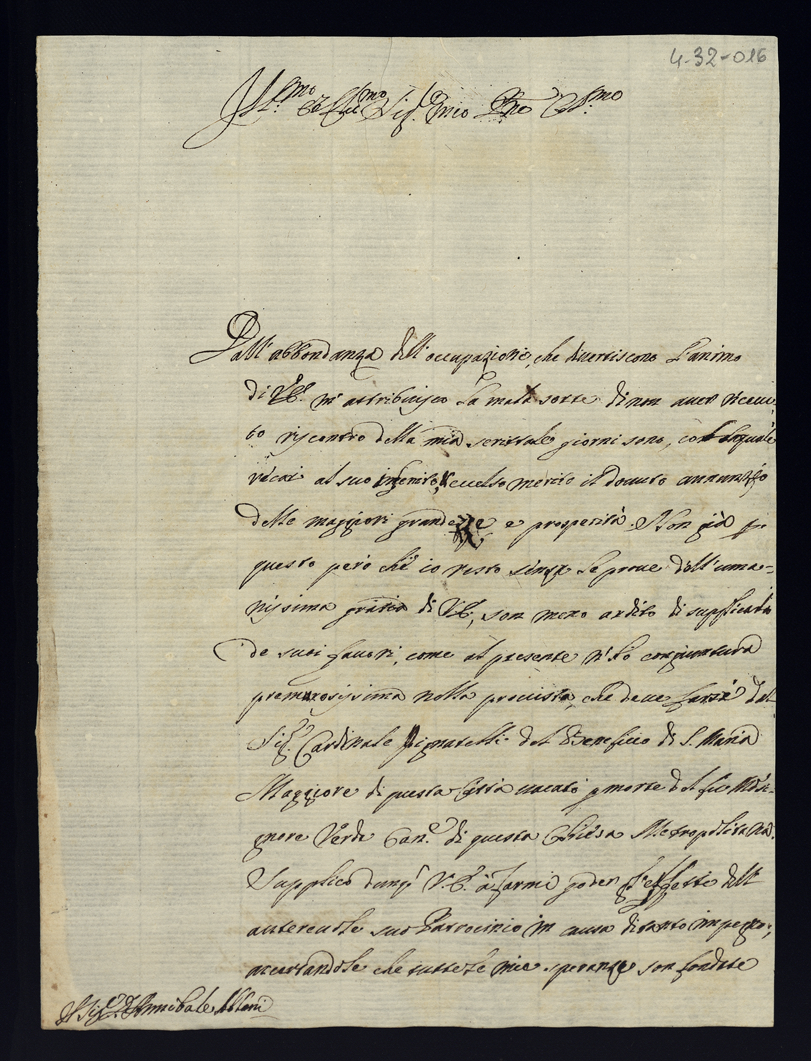 4-32-016
Ill.mo et Ecc.mo Sig.r mio P.rone Col.mo
Dall'abbondanza dell'occupazioni, che divertiscono l'animo
di V.E. m'attribuisco la mala sorte di non aver riceuu-
to riscontro della mia scrittale giorni sono, con la quale
recai al suo infinito, eccelso merito il douuto annunzio
delle maggiori grandezze e prosperità. Non già p
questo però che io resto senza le proue dell'uma-
nissima gratia di VE, son meno ardito di supplicarla
de suoi fauori, come al presente n'hò congiuntura
premurosissima nella prouista, che deue farsi dal
Sig.r Cardinale Pignatelli del Beneficio di S. Maria
Maggiore di questa Città uacato p morte del fu Monsi-
gnore Verde Can.co di questa Chiesa Metropolitana.
Supplico dunq V.E. à farmi goder l'effetto dell'
autereuole suo Patrocinio in causa di tanto impegno,
accertandole che tutte le mie speranze son fondate
Sig.r D. Annibale Albani